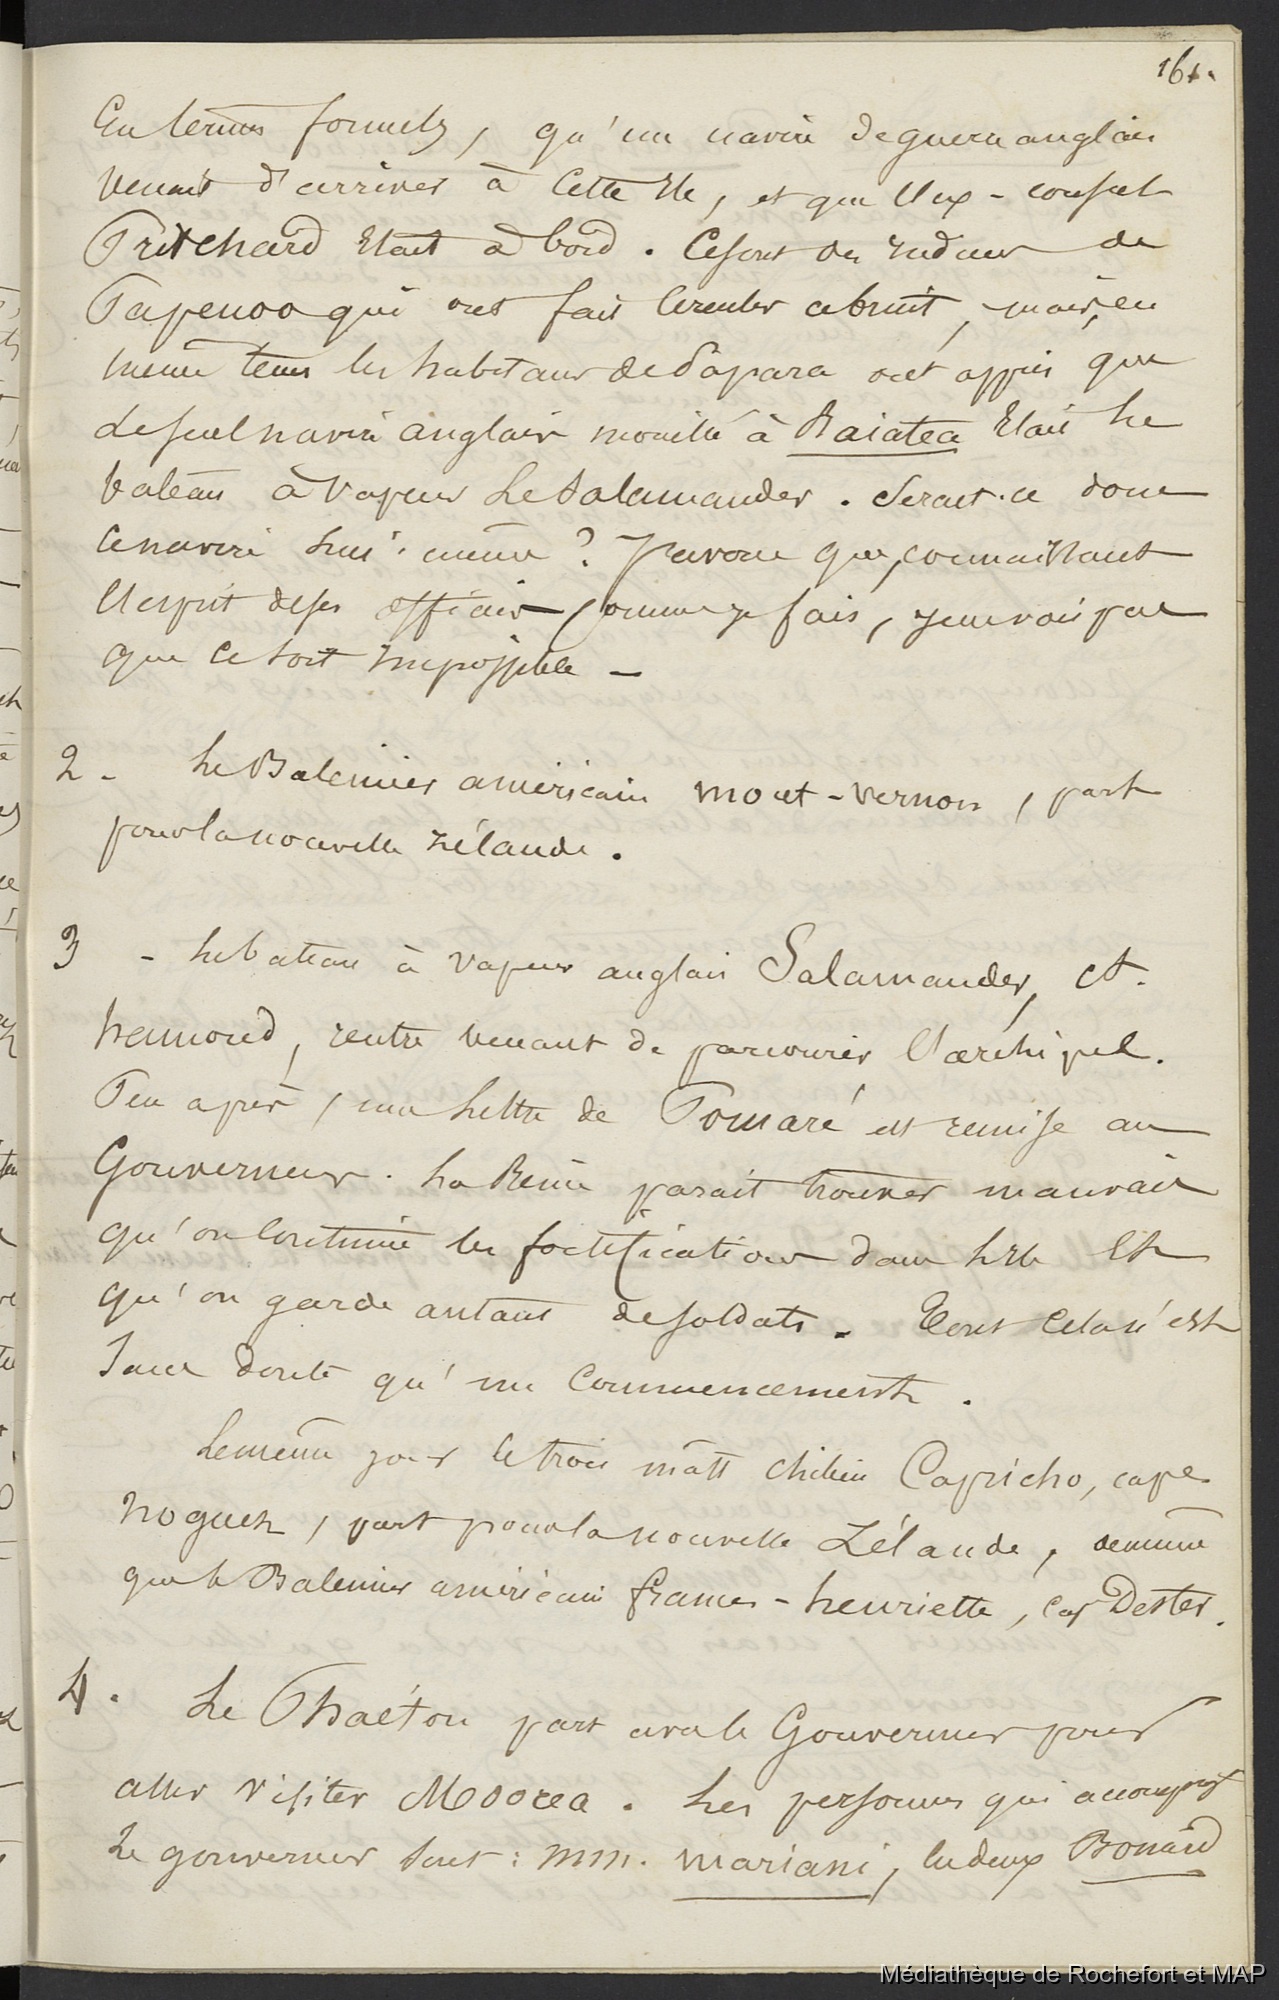 161.
En termes formels, qu'un navire de guerre anglais
venait d'arriver à cette Ile, et que l'ex-consul
Pritchard était à bord. Ce sont des indiens de
Papenoo qui ont fait circuler ce bruit, mais, en
même tems les habitans de Papara ont appris que
le seul navire anglais mouillé à Raiatea était le
bateau à vapeur le Salamander. Serait-ce donc
ce navire lui-même? J'avoue que, connaissant
l'esprit de ses officiers comme je fais, je ne vois pas
que ce soit impossible -
2 - Le Baleinier américain mont-vernon, part
pour la nouvelle zélande.
3 - Le bateau à vapeur anglais Salamander, Ct.
hamond, rentre venant de parcourir l'archipel.
Peu après, une lettre de Pomaré est remise au
Gouverneur. La Reine parait trouver mauvais
qu'on continue les fortifications dans l'Ile et
qu'on garde autant de soldats. Tout cela n'est
sans doute qu'un commencement.
Le même jour le trois mâts chilien Capricho, cape
noguez, part pour la nouvelle Zélande, de même
que le Baleinier américain frances-henriette, cap Dexter.
4. Le Phaéton part avec le Gouverneur pour
aller visiter Moorea. Les personnes qui accompagt
le gouverneur sont: mm. mariani, les deux Bonard
Médiathèque de Rochefort et MAP